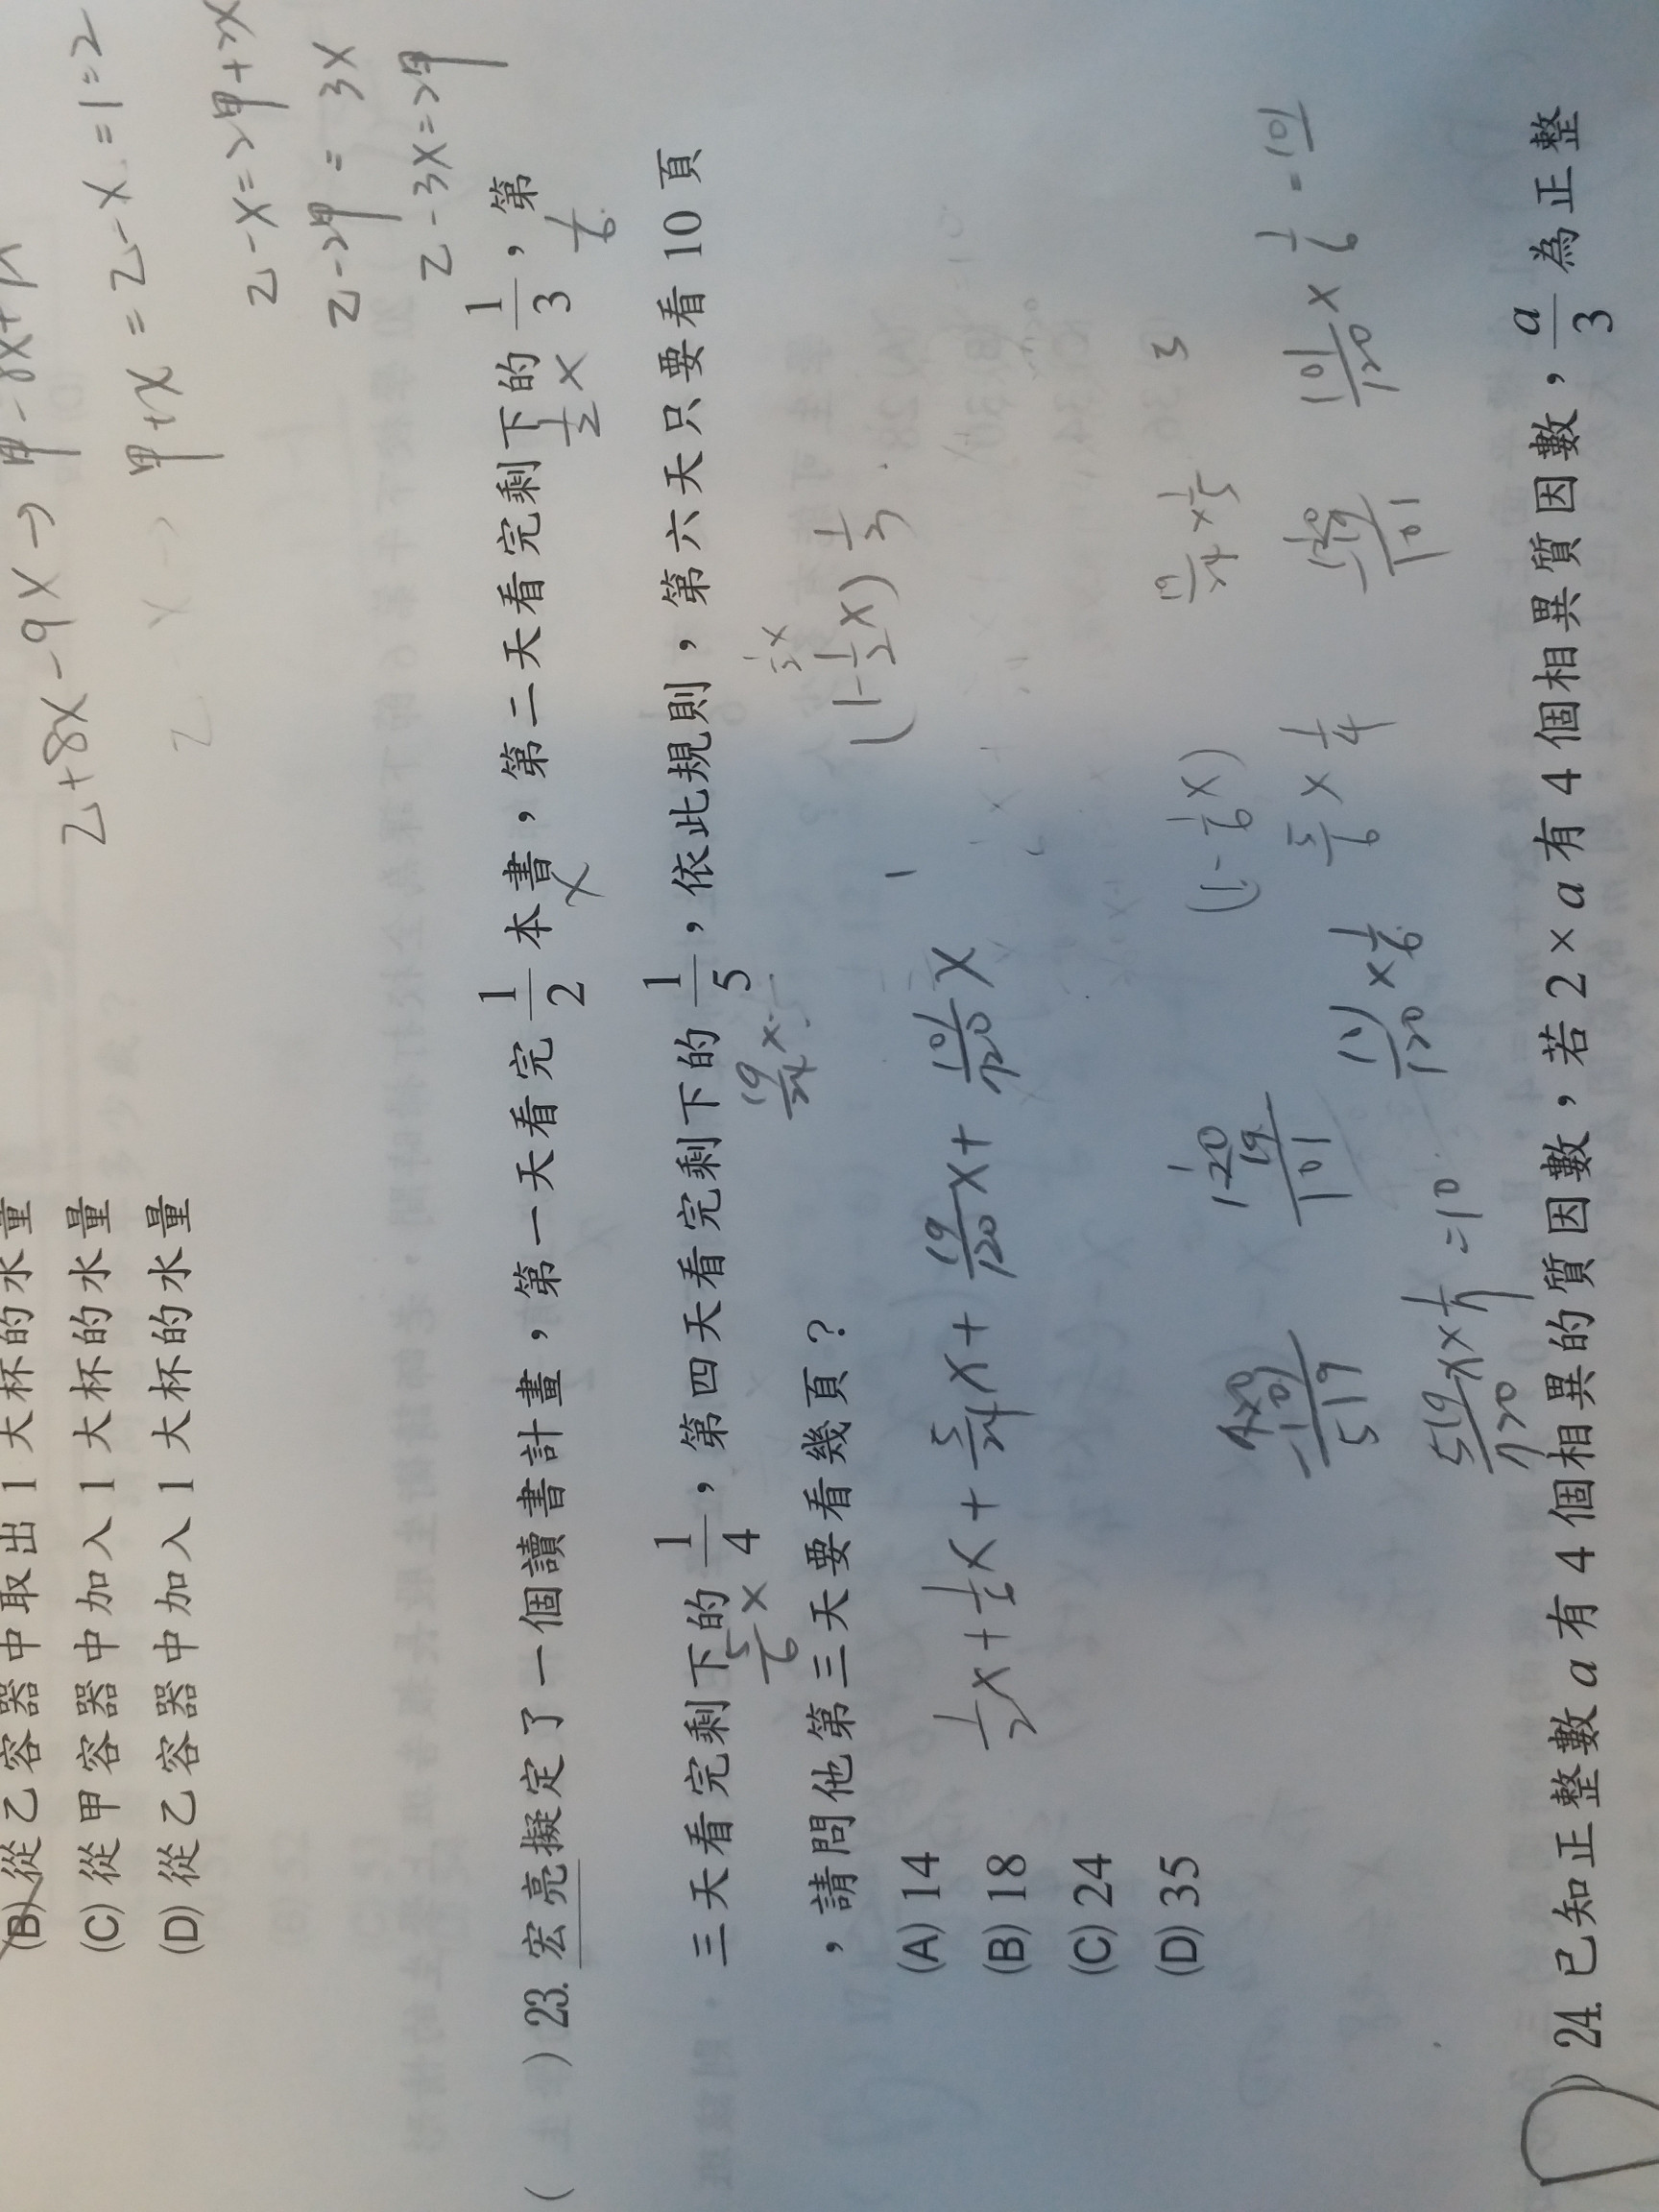 (B) 從乙容器中取出 1 大杯的水量
(C) 從甲容器中加入 1 大杯的水量
(D) 從乙容器中加入 1 大杯的水量
乙+8X-9X→
甲+X=乙-X=1=2
乙-X=2甲+2X
乙-2甲=3X
乙-3X=2甲
( ) 23. 宏亮擬定了一個讀書計畫,第一天看完 1/2 本書,第二天看完剩下的 1/3,第
X
1/2 X
1/6
三天看完剩下的 1/4,第四天看完剩下的 1/5,依此規則,第六天只要看 10 頁
5/6 X
19/24 X
,請問他第三天要看幾頁?
1/2 X
(1-1/2X) 1/3
(A) 14
(B) 18
(C) 24
(D) 35
1/2X+1/6X+5/24X+19/120X+101/720X
(1-1/6X)
5/6 X 1/4
19/24 X 1/5
3
120
19
101
101/120 X 1/6 =101
101/120 X 1/6
720
101
519
519/720 X X 1/7 =10
) 24. 已知正整數 a 有 4 個相異的質因數,若 2×a 有 4 個相異質因數,a/3 為正整